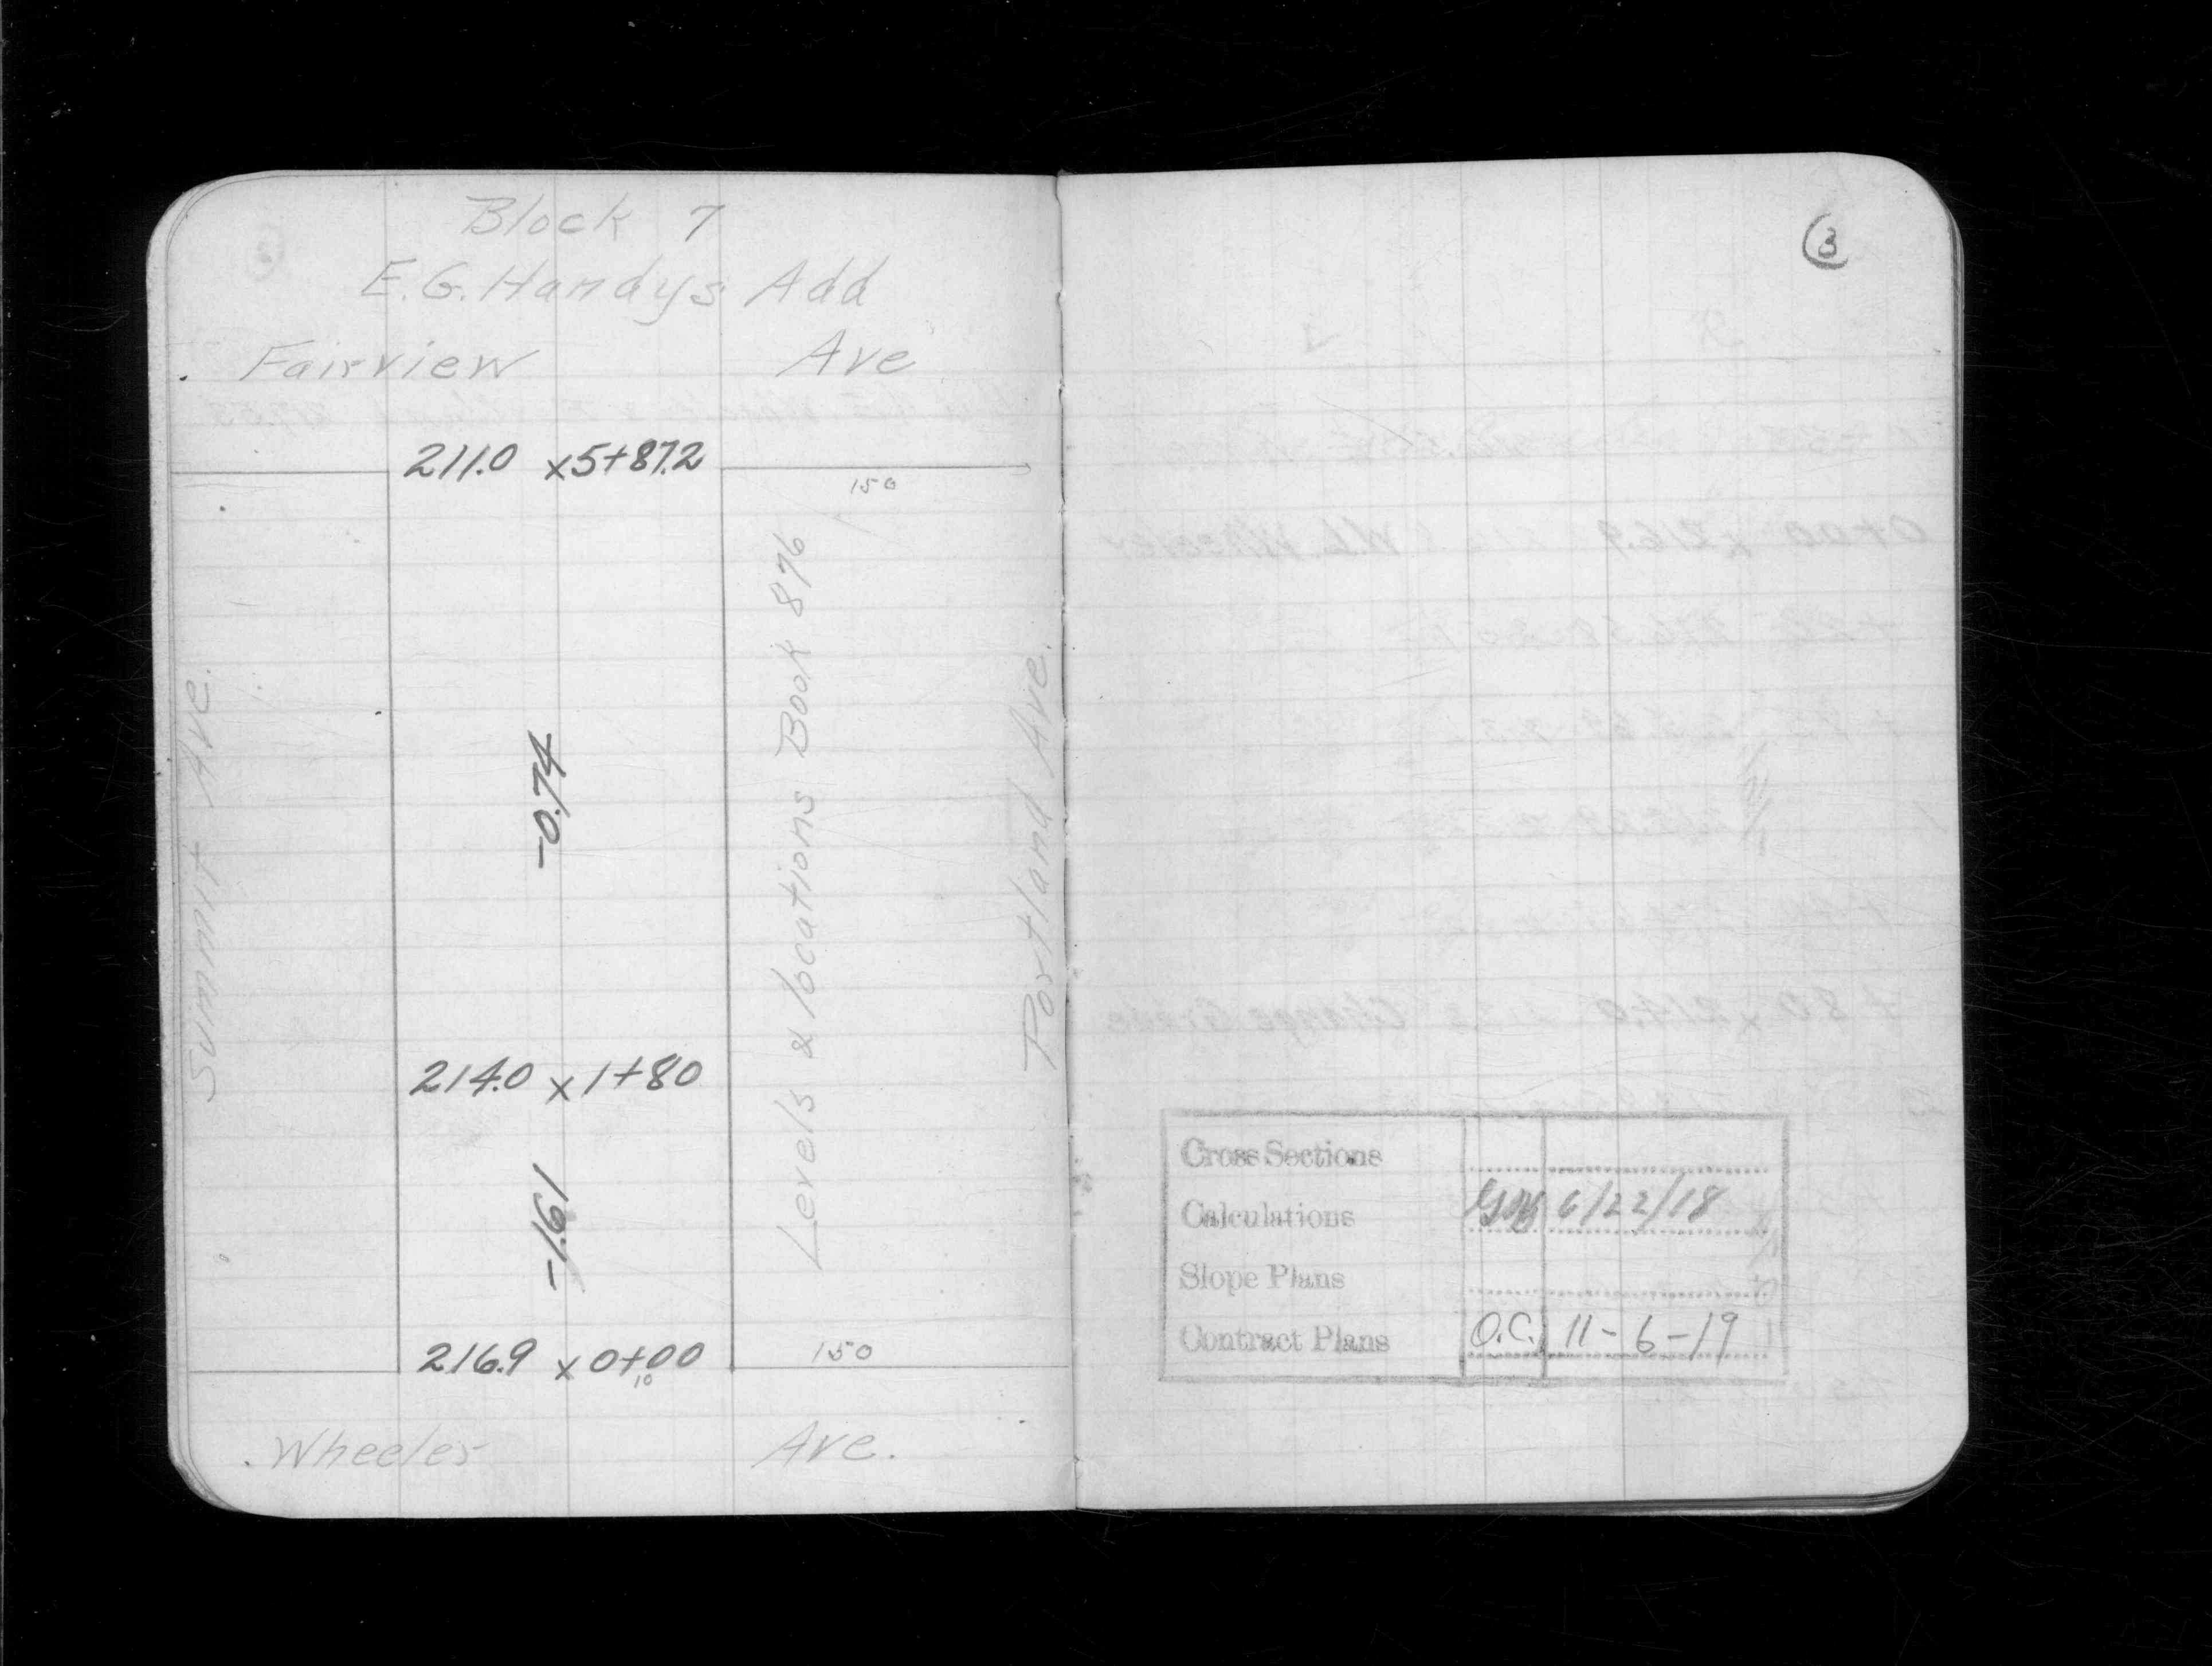 Block 7
E.G. Handys Add
Fairview Ave
211.0 x 5+87.2
150
Summit Ave.
-0.74
Levels & locations Book 876
Portland Ave.
214.0 x 1+80
-1.61
216.9 x 0+00
10
150
Wheeler Ave.
3
Cross Sections
Calculations 6/22/18
Slope Plans
Contract Plans O.C. 11-6-19